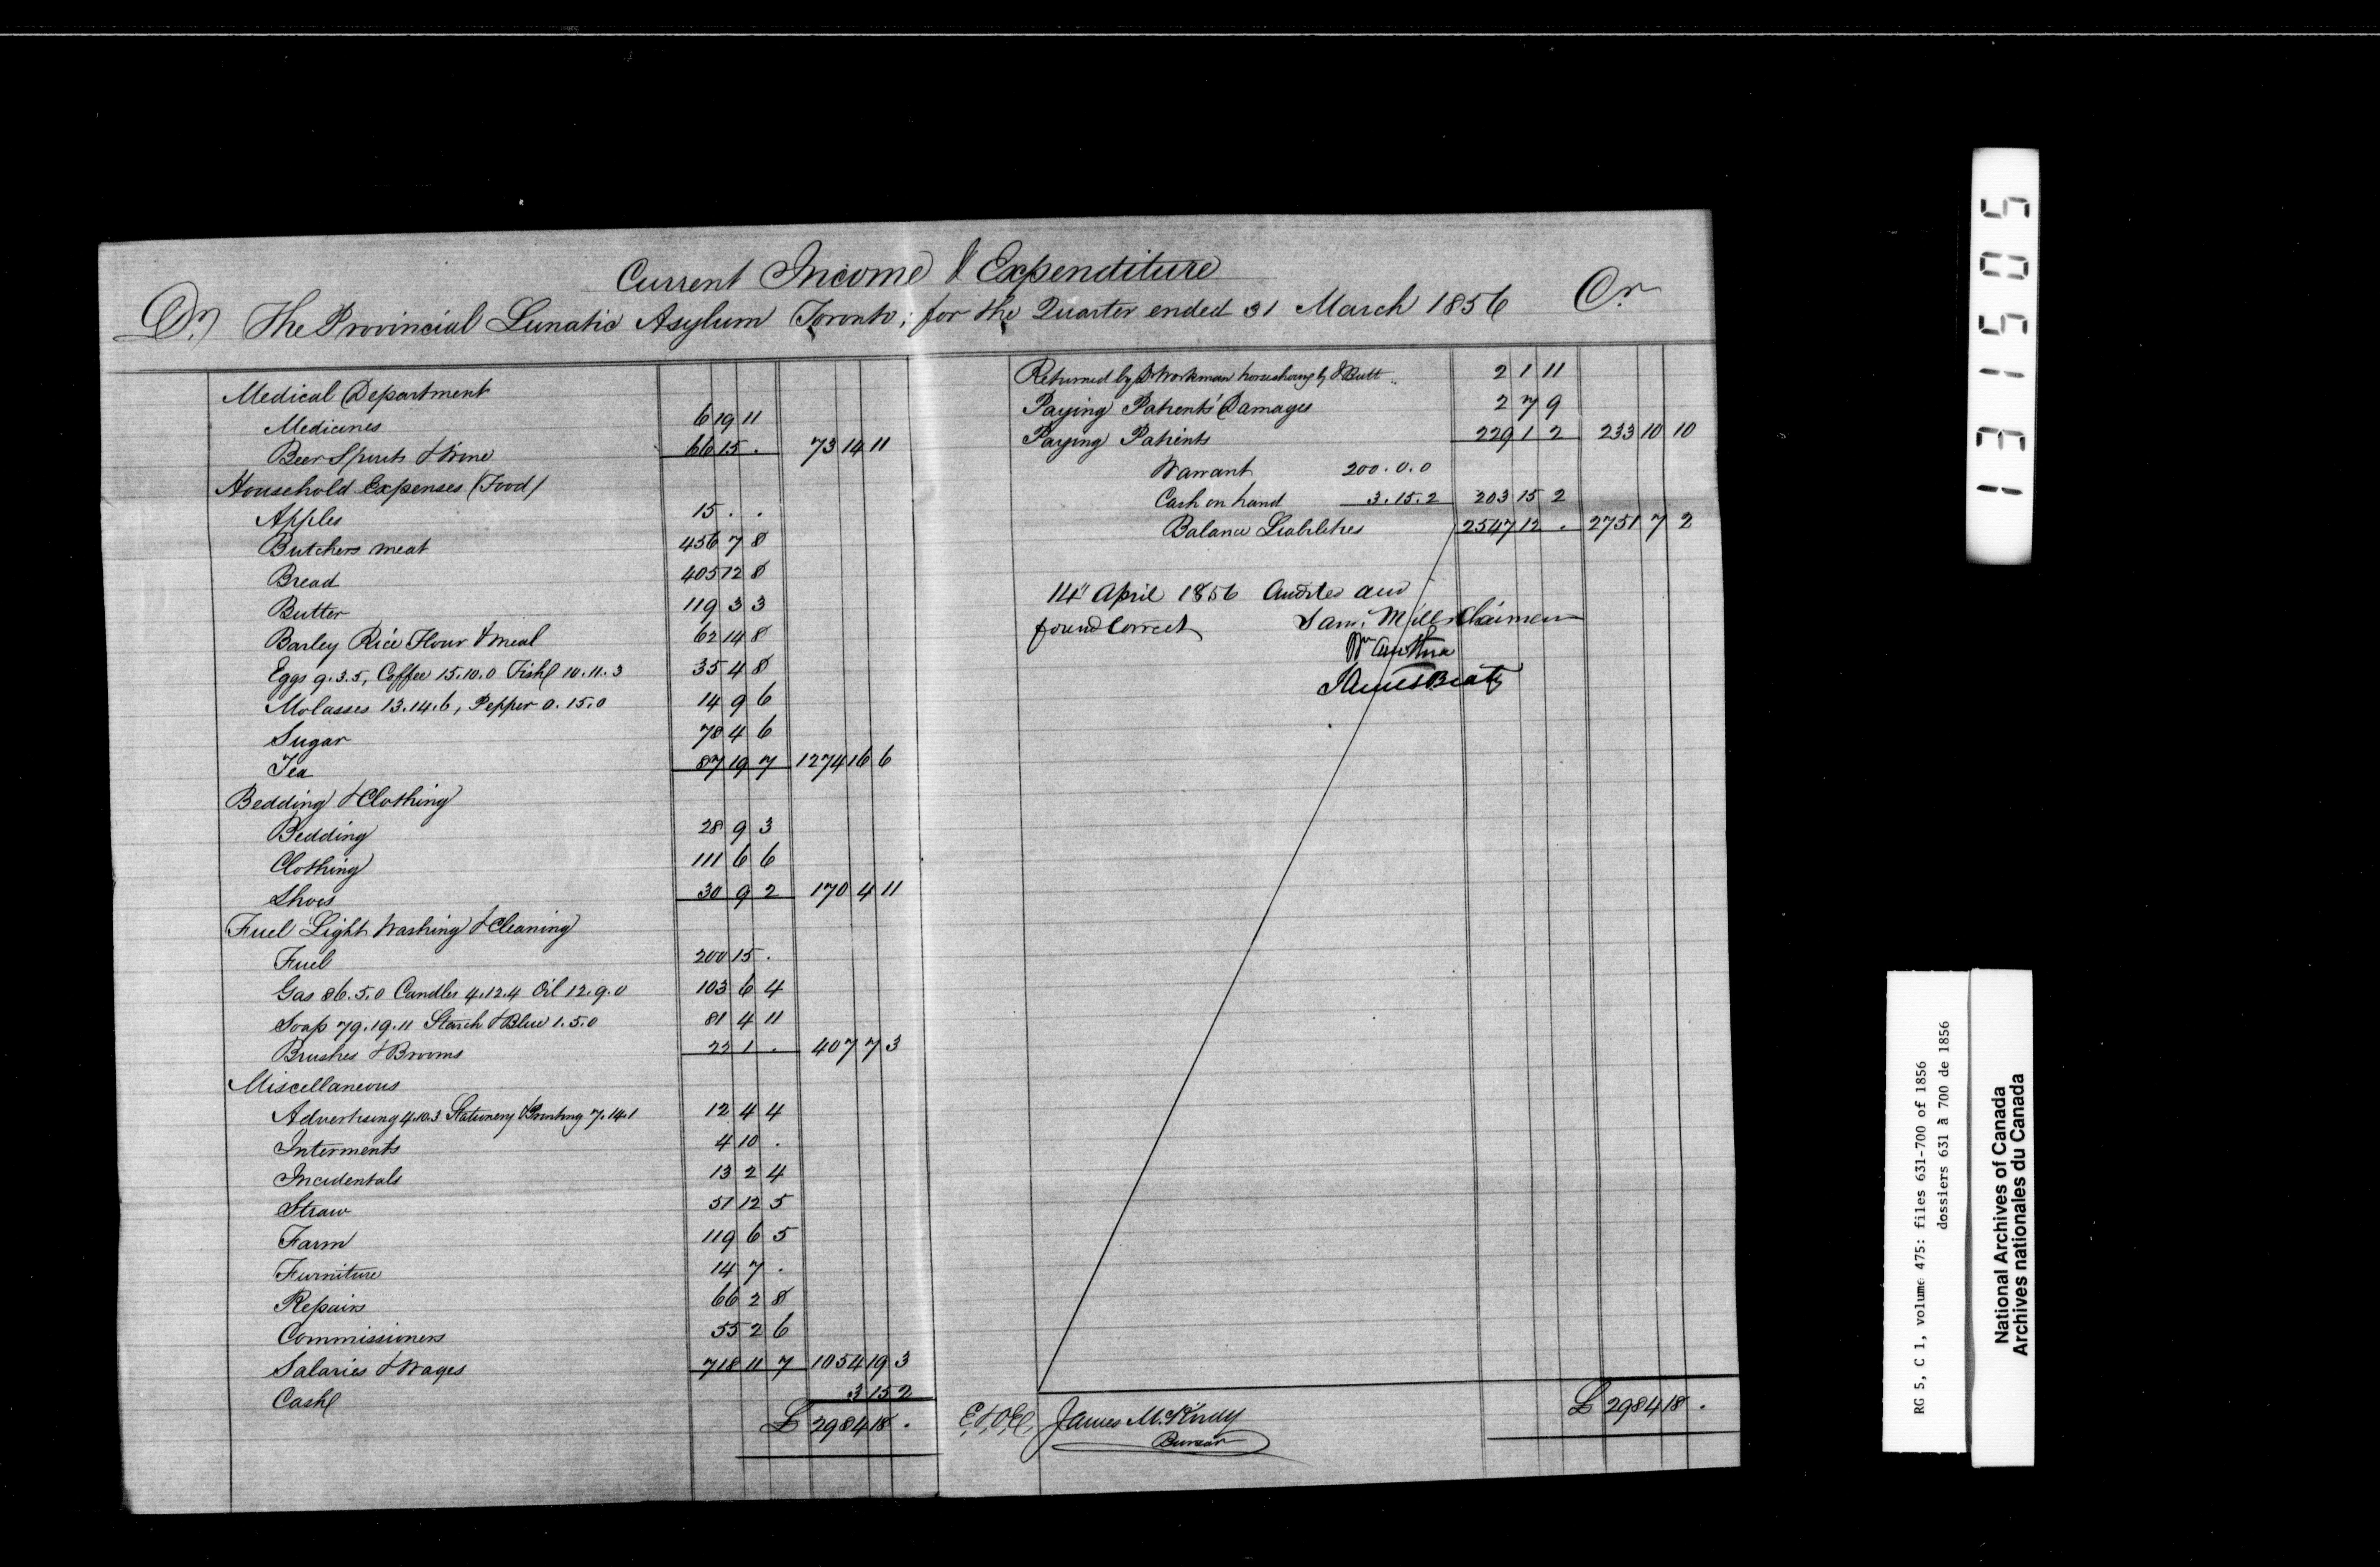 Current Income & Expenditure
Dr. The Provincial Lunatic Asylum Toronto; for the Quarter ended 31 March 1856 Cr
Medical Department
Medicines 6 19 11
Beer Spirits & Wine 66 15 . 73 14 11
Household Expenses (Food)
Apples 15 . .
Butchers meat 456 7 8
Bread 405 12 8
Butter 119 3 3
Barley Rice Flour & Meal 62 14 8
Eggs 9.3.5, Coffee 15.10.0 Fish 10.11.3 35 4 8
Molasses 13.14.6, Pepper 0.15.0 14 9 6
Sugar 78 4 6
Tea 87 19 7 1274 16 6
Bedding & Clothing
Bedding 28 9 3
Clothing 111 6 6
Shoes 30 9 2 170 4 11
Fuel Light Washing & Cleaning
Fuel 200 15 .
Gas 86.5.0 Candles 4.12.4 Oil 12.9.0 103 6 4
Soap 79.19.11 Starch & Blue 1.5.0 81 4 11
Brushes & Brooms 22 1 . 407 7 3
Miscellaneous
Advertising 4.10.3 Stationery & Printing 7.14.1 12 4 4
Interments 4 10 .
Incidentals 13 2 4
Straw 51 12 5
Farm 119 6 5
Furniture 14 7 .
Repairs 66 2 8
Commissioners 55 2 6
Salaries & Wages 718 11 7 1054 19 3
Cash 3 15 2
£ 2984 18 .
Returned by Dr Workman horseshoeing by J Butt .. 2 1 11
Paying Patients' Damages 2 7 9
Paying Patients 229 1 2 233 10 10
Warrant 200.0.0
Cash on hand 3.15.2 203 15 2
Balance Liabilities 2547 12 . 2751 7 2
14 April 1856 Audited and
found Correct Saml Mills Chairman
Wm
James Beaty
£ 2984 18 .
E. & O. E. James M. Kirdy
Bursar
131505
RG 5, C 1, volume 475: files 631-700 of 1856
dossiers 631 à 700 de 1856
National Archives of Canada
Archives nationales du Canada